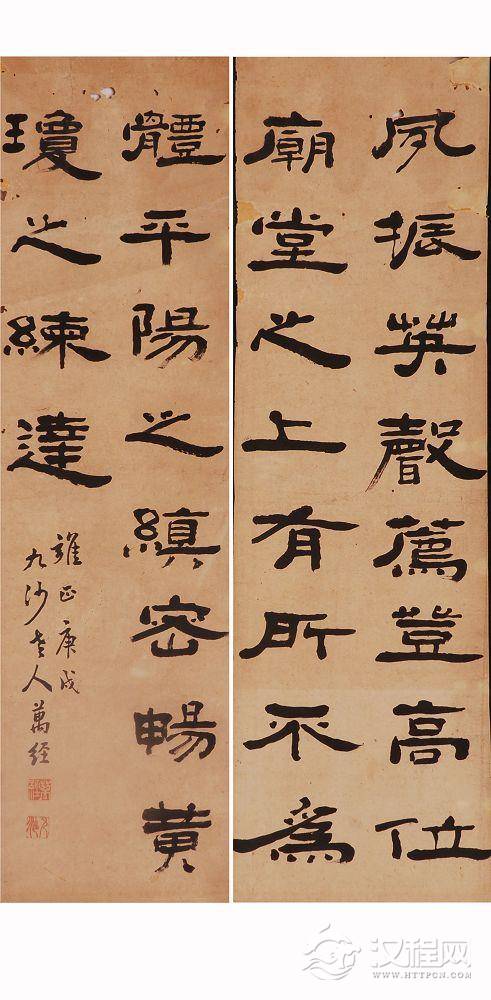 夙振英聲薦登高位
廟堂之上有所不為
體平陽之縝密暢黃
瓊之練達
雍正庚戌
九沙老人萬经
汉程网
WWW.HTTPCN.COM